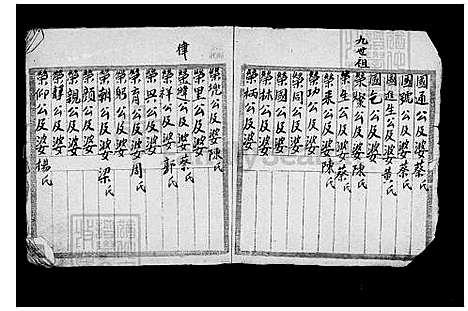 九世祖
國通公及婆蔡氏
國號公及婆蔡氏
國進生公及婆黃氏
國乞公及婆
榮璧公及婆陳氏
榮生公及婆蔡氏
榮來公及婆陳氏
榮功公及婆
榮同公及婆
榮國公及婆
榮林公及婆
榮柄公及婆
偉
榮兜公及婆陳氏
榮里公及婆
榮贊公及婆蔡氏
榮祥公及婆郭氏
榮興公及婆
榮育公及婆周氏
榮躬公及婆
榮朝公及婆梁氏
榮顏公及婆
榮親公及婆
榮釋公及婆
榮仰公及婆楊氏